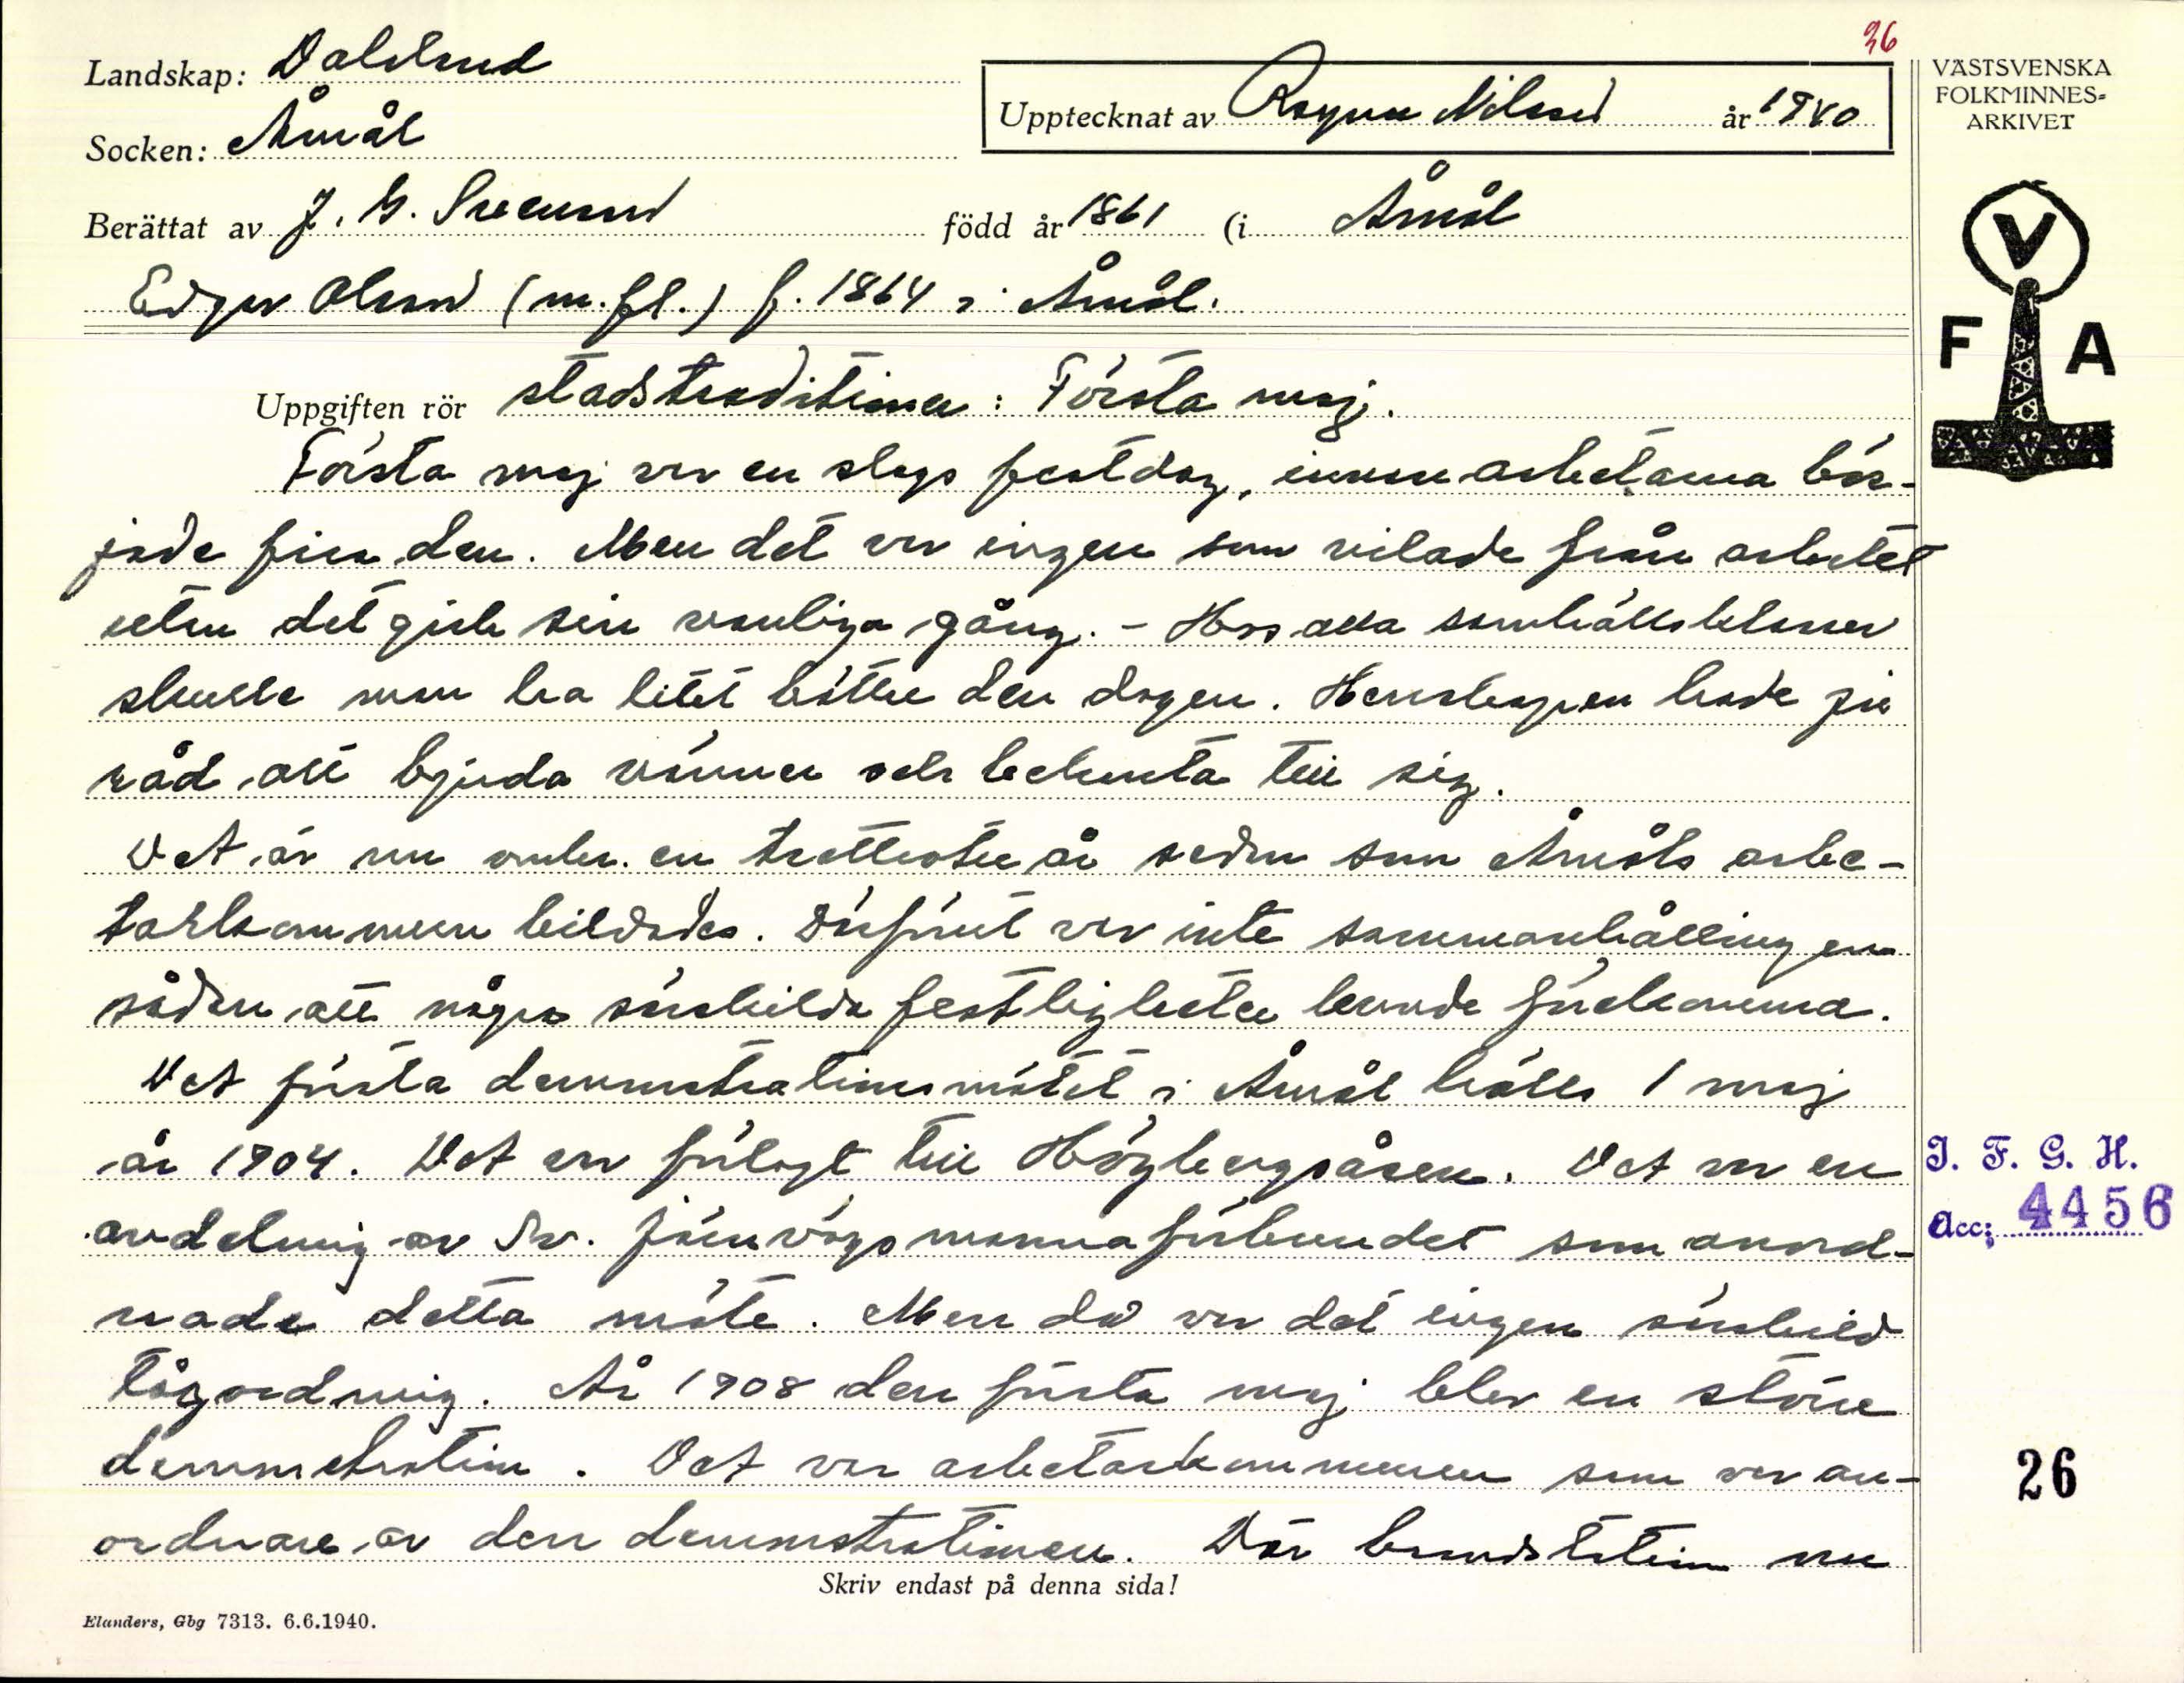 36
Landskap: Dalsland
Socken: Åmål
Upptecknat av Ragnar Nilsson år 1940
Berättat av J. G. Svensson född år 1861 (i Åmål
Edgar Olsson (m. fl.) f. 1864 i Åmål.
VÄSTSVENSKA
FOLKMINNES=
ARKIVET
V
F A
Uppgiften rör stadstraditioner: Första maj.
Första maj var en slags festdag, innan arbetarna bör-
jade fira den. Men det var ingen som vilade från arbetet
utan det gick sin vanliga gång. - Hos alla samhällsklasser
skulle man ha litet bättre den dagen. Herrskapen hade ju
råd att bjuda vänner och bekanta till sig.
Det är nu omkr. en trettiotre år sedan som Åmåls arbe-
tarkommun bildades. Dörförut var inte sammanhållningen
sådan att några särskilda festligheter kunde förekomma.
Det första demonstrationsmötet i Åmål hölls 1 maj
år 1904. Det var förlagt till Högbergsåsen. Det var en
avdelning av Sv. järnvägsmannaförbundet som anord-
nade detta möte. Men då var det ingen särskild
tågordning. År 1908 den första maj blev en större
demonstration. Det var arbetarkommunen som var an-
ordnare av den demonstrationen. Där brandstation nu
I. F. G. H.
Acc; 4456
26
Skriv endast på denna sida!
Elanders, Gbg 7313. 6.6.1940.